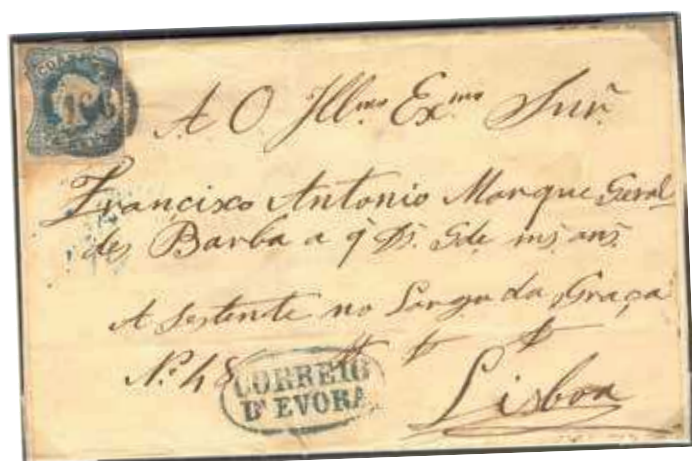 A O Illmo Exmo Snr.
Francisco Antonio Marque Geral
des Barba a q Ds. Gde ms. ans.
A no Largo da Graça
No. 48
CORREIO
D'EVORA
Lisboa